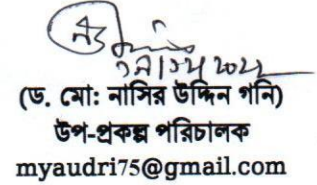 (ড. মো: নাসির উদ্দিন গনি)
উপ-প্রকল্প পরিচালক
myaudri75@gmail.com